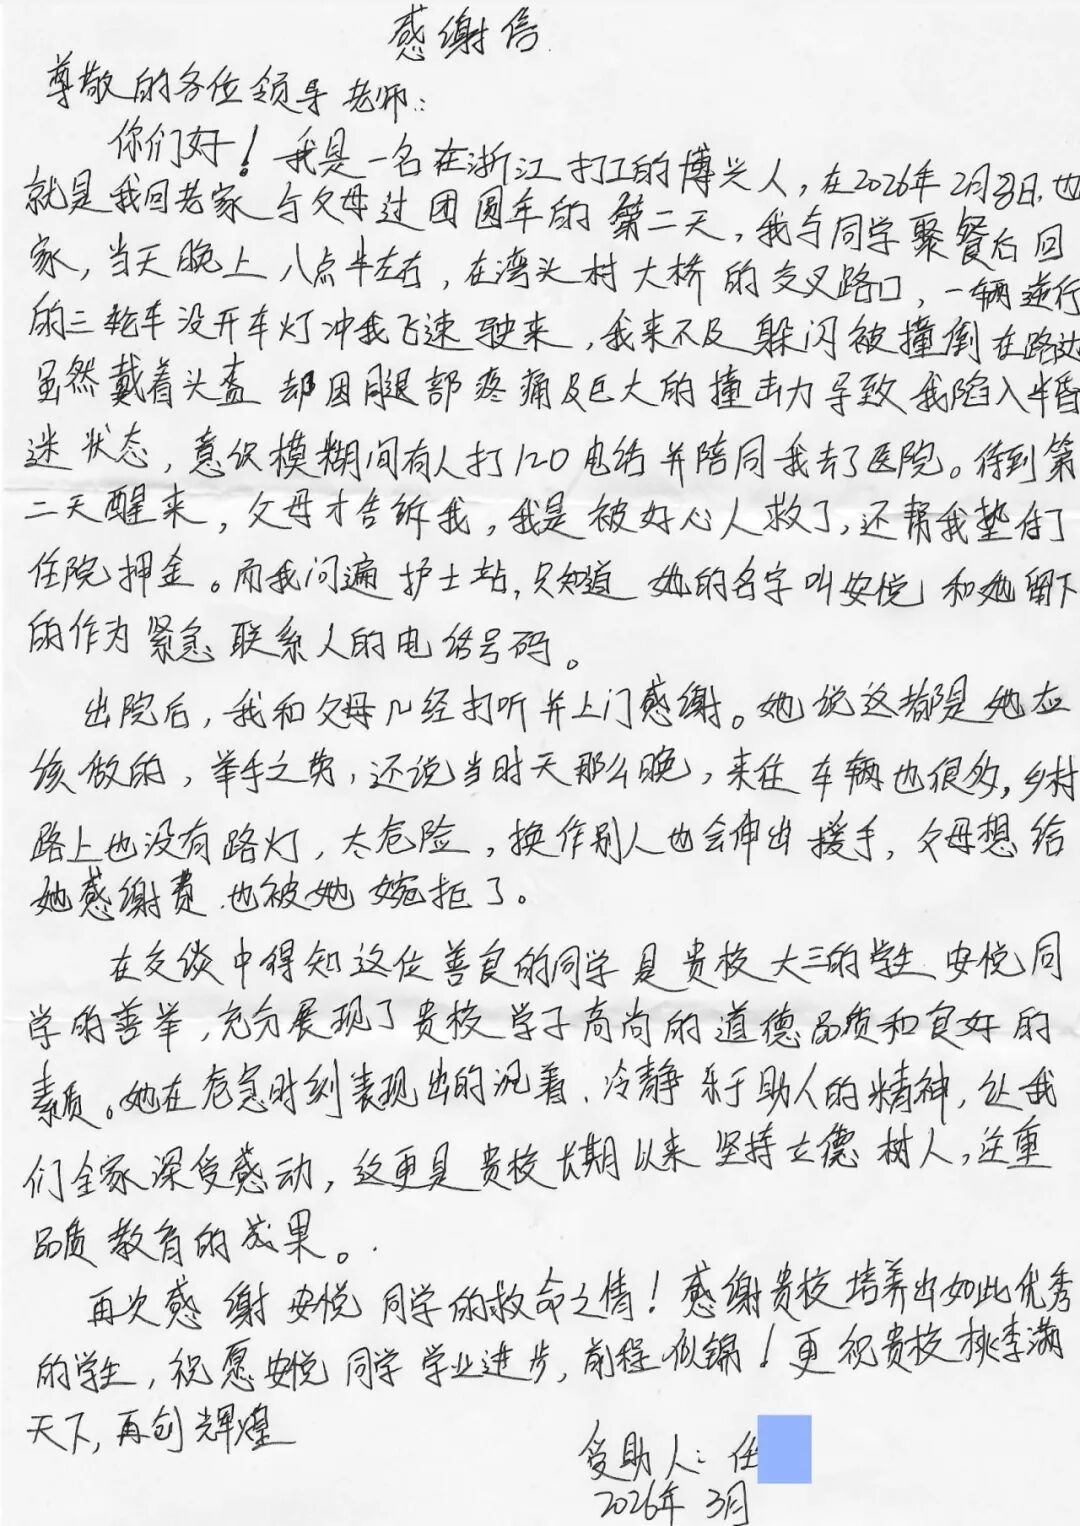 感谢信
尊敬的各位领导老师:
你们好!我是一名在浙江打工的博兴人,在2026年2月日,也
就是我回老家与父母过团圆年的第二天,我与同学聚餐后回
家,当天晚上八点半左右,在湾头村大桥的交叉路口,一辆逆行
的三轮车没开车灯冲我飞速驶来,我来不及躲闪被撞倒在路边
虽然戴着头盔却因腿部疼痛及巨大的撞击力导致我陷入半昏
迷状态,意识模糊间有人打120电话并陪同我去了医院。待到第
二天醒来,父母才告诉我,我是被好心人救了,还帮我垫付了
住院押金。而我问遍护士站,只知道她的名字叫安悦和她留下
的作为紧急联系人的电话号码。
出院后,我和父母几经打听并上门感谢。她说这都是她应
该做的,举手之劳,还说当时天那么晚,来往车辆也很多,乡村
路上也没有路灯,太危险,换作别人也会伸出援手,父母想给
她感谢费也被她婉拒了。
在交谈中得知这位善良的同学是贵校大三的学生安悦同
学的善举,充分展现了贵校学子高尚的道德品质和良好的
素质。她在危急时刻表现出的沉着、冷静乐于助人的精神,让我
们全家深受感动,这更是贵校长期以来坚持立德树人,注重
品质教育的成果。
再次感谢安悦同学的救命之情!感谢贵校培养出如此优秀
的学生,祝愿安悦同学学业进步,前程似锦!更祝贵校桃李满
天下,再创辉煌
受助人:任
2026年3月